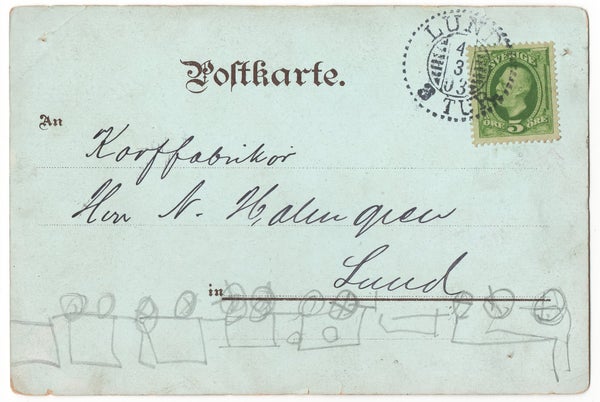 Postkarte.
LUND
4
3
03
TUR
SVERIGE
ÖRE 5 ÖRE
An
Korffabrikör
Herr N. Holmgren
Lund
in